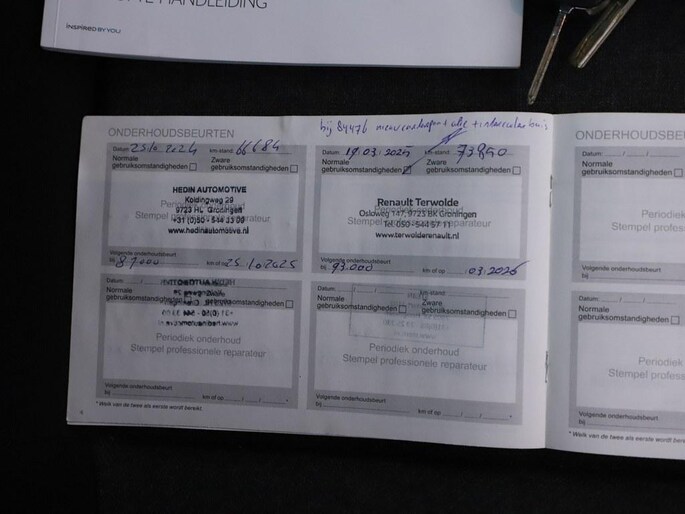 HANDLEIDING
INSPIRED BY YOU
bij 84476
ONDERHOUDSBEURTEN
Datum: 25.10.2024 km-stand: 66684
Normale gebruiksomstandigheden
Zware gebruiksomstandigheden
HEDIN AUTOMOTIVE
Koldingweg 29
9723 HL Groningen
+31 (0)50 - 544 33 00
www.hedinautomotive.nl
Periodiek onderhoud
Stempel professionele reparateur
Volgende onderhoudsbeurt
bij 87.000 km of op 25.10.2025
Datum: 19.03.2025 km-stand: 73890
Normale gebruiksomstandigheden
Zware gebruiksomstandigheden
Renault Terwolde
Osloweg 147, 9723 BK Groningen
Tel. 050 - 544 57 11
www.terwolderenault.nl
Periodiek onderhoud
Stempel professionele reparateur
Volgende onderhoudsbeurt
bij 93.000 km of op .03.2026
Datum: km-stand:
Normale gebruiksomstandigheden
Zware gebruiksomstandigheden
Periodiek onderhoud
Stempel professionele reparateur
Volgende onderhoudsbeurt
bij km of op
Datum: km-stand:
Normale gebruiksomstandigheden
Zware gebruiksomstandigheden
Periodiek onderhoud
Stempel professionele reparateur
Volgende onderhoudsbeurt
bij km of op
* Welk van de twee als eerste wordt bereikt.
ONDERHOUDSBEU
Datum:
Normale
gebruiksomstandigheden
Periodiek
Stempel profes
Volgende onderhoudsbeurt
bij
Datum:
Normale
gebruiksomstandigheden
Periodiek
Stempel profess
Volgende onderhoudsbeurt
bij
* Welk van de twee als eerste wordt